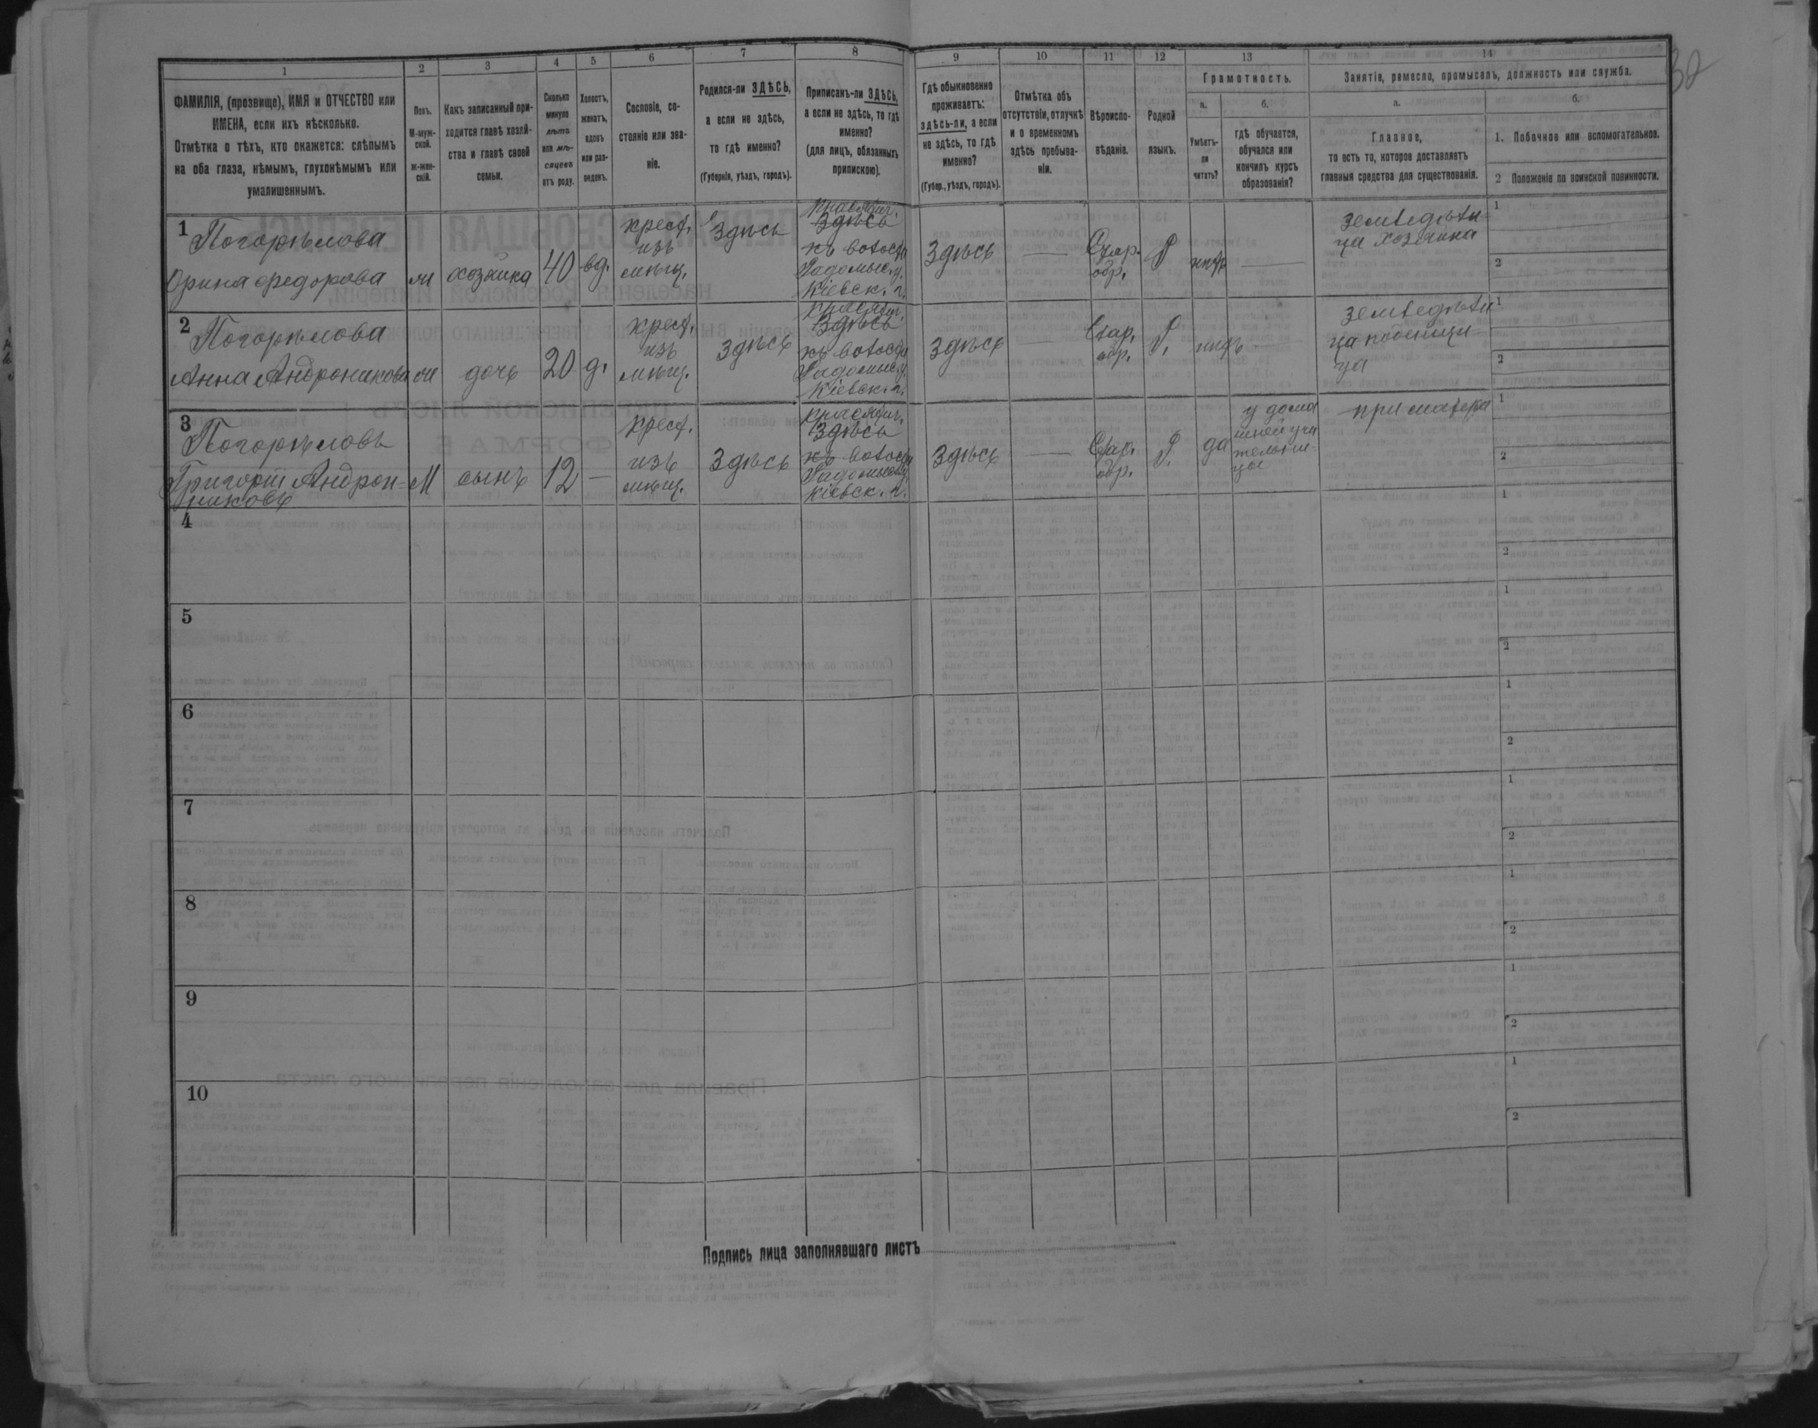 32
1 2 3 4 5 6 7 8 9 10 11 12 13 14
ФАМИЛІЯ, (прозвище), ИМЯ и ОТЧЕСТВО или ИМЕНА, если ихъ нѣсколько.
Отмѣтка о тѣхъ, кто окажется: слѣпымъ на оба глаза, нѣмымъ, глухонѣмымъ или умалишеннымъ.
Полъ.
М-муж-
ской.
Ж-жен-
скій.
Какъ записанный при-
ходится главѣ хозяй-
ства и главѣ своей
семьи.
Сколько
минуло
лѣтъ
или мѣ-
сяцевъ
отъ роду.
Холостъ,
женатъ,
вдовъ
или раз-
веденъ.
Сословіе, со-
стояніе или зва-
ніе.
Родился-ли ЗДѢСЬ,
а если не здѣсь,
то гдѣ именно?
(Губернія, уѣздъ, городъ).
Приписанъ-ли ЗДѢСЬ,
а если не здѣсь, то гдѣ
именно?
(для лицъ, обязанныхъ
припискою).
Гдѣ обыкновенно
проживаетъ:
здѣсь-ли, а если
не здѣсь, то гдѣ
именно?
(Губер., уѣздъ, городъ).
Отмѣтка объ
отсутствіи, отлучкѣ
и о временномъ
здѣсь пребыва-
ніи.
Вѣроиспо-
вѣданіе.
Родной
языкъ.
Грамотность.
а.
Умѣетъ-
ли
читать?
б.
гдѣ обучается,
обучался или
кончилъ курсъ
образованія?
Занятіе, ремесло, промыселъ, должность или служба.
а.
Главное,
то есть то, которое доставляетъ
главныя средства для существованія.
б.
1. Побочное или вспомогательное.
2 Положеніе по воинской повинности.
1 Погорѣлова
Орина Федорова
хозяйка
40
вд.
крест.
изъ
мѣщ.
Здѣсь
Здѣсь
къ волости
Радомысл. у.
Кіевск. г.
Здѣсь
—
Стар.
обр.
Р
нѣтъ
—
земледѣли
ца хозяйка
1
2
2 Погорѣлова
Анна Андроникова
дочь
20
д.
крест.
изъ
мѣщ.
Здѣсь
Здѣсь
къ волости
Радомысл. у.
Кіевск. г.
Здѣсь
—
Стар.
обр.
Р.
нѣтъ
—
земледѣли
1
2
3 Погорѣловъ
Григорій Андрон-
никовъ
М
сынъ
12
—
крест.
изъ
мѣщ.
Здѣсь
Здѣсь
къ волости
Радомысл. у.
Кіевск. г.
Здѣсь
—
Стар.
обр.
Р.
да
у дома
шней учи
тельни
цы
при матери
1
2
4
1
2
5
1
2
6
1
2
7
1
2
8
1
2
9
1
2
10
1
2
Подпись лица заполнявшаго листъ